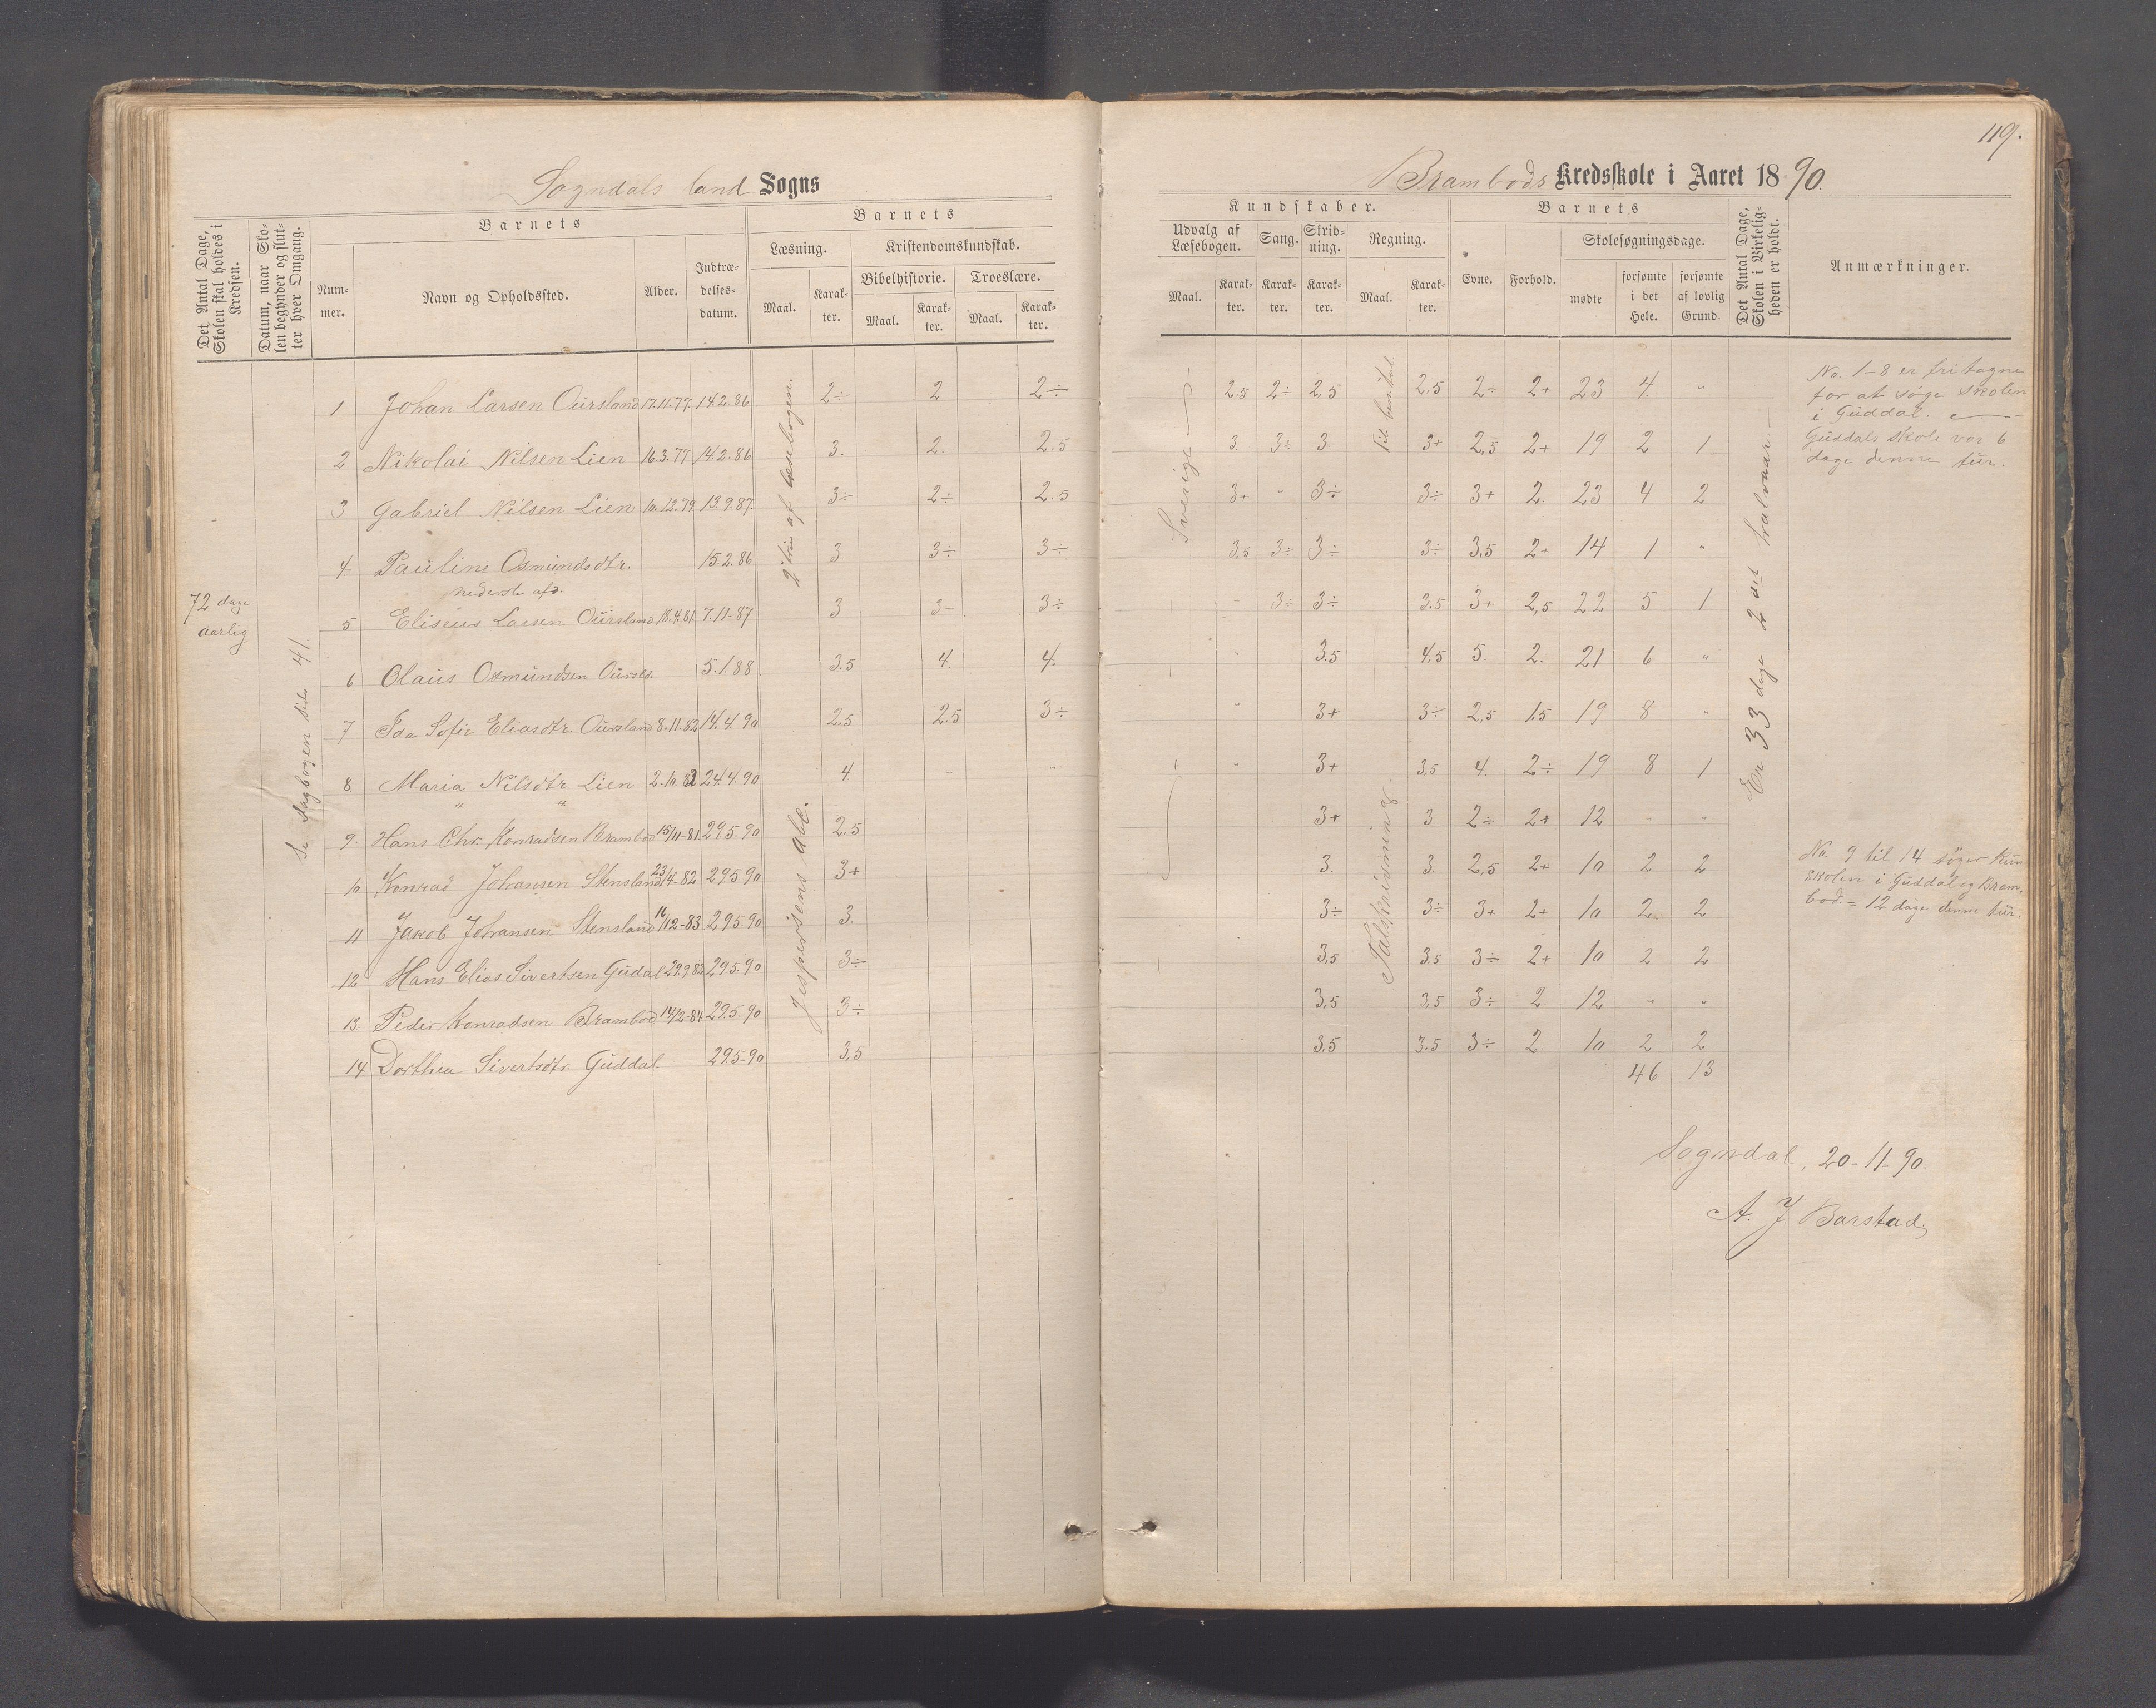 119.
Sogndals land Sogns
Brambods Kredsskole i Aaret 1890.
Det Antal Dage, Skolen skal holdes i Kredsen.
Datum, naar Skolen begynder og slutter hver Omgang.
Barnets
Nummer.
Navn og Opholdssted.
Alder.
Indtrædelsesdatum.
Barnets
Læsning.
Maal.
Karakter.
Kristendomskundskab.
Bibelhistorie.
Maal.
Karakter.
Troeslære.
Maal.
Karakter.
Kundskaber.
Udvalg af Læsebogen.
Maal.
Karakter.
Sang.
Karakter.
Skrivning.
Karakter.
Regning.
Maal.
Karakter.
Barnets
Evne.
Forhold.
Skolesøgningsdage.
mødte
forsømte i det Hele.
forsømte af lovlig Grund.
Det Antal Dage, Skolen i Virkeligheden er holdt.
Anmærkninger.
72 dage
aarlig
Se Dagbogen side 41.
2 trin af læsebogen.
Jespersens Abc.
Sverige
Talskrivning
Er 33 dage 2 det halvaar.
1 Johan Larsen Oursland 17.11.77 14.2.86 2÷ 2 2÷ 2.5 2÷ 2,5 2,5 2÷ 2+ 23 4 "
2 Nikolai Nilsen Lien 16.3.77 14.2.86 3. 2. 2.5 3. 3÷ 3. 3+ 2,5 2+ 19 2 1
3 Gabriel Nilsen Lien 10.12.79 13.9.87 3÷ 2÷ 2.5 3+ " 3÷ 3÷ 3+ 2. 23 4 2
4. Pauline Osmundsdtr. 15.2.86 3. 3÷ 3÷ 3,5 3÷ 3÷ 3÷ 3,5 2+ 14 1 "
nederste afd.
5 Eliseus Larsen Oursland 18.4.81 7.11-87 3 3- 3÷ - 3÷ 3÷ 3.5 3+ 2,5 22 5 1
6 Olaus Osmundsen Oursld. 5.1.88 3.5 4. 4. " 3.5 4,5 5. 2. 21 6 "
7 Ida Sofie Eliasdtr. Oursland 8.11.82 14.4.90 2.5 2.5 3÷ " 3+ 3÷ 2,5 1.5 19 8 "
8 Maria Nilsdtr. Lien 2.10.82 24.4.90 4 - " " 3+ 3,5 4. 2÷ 19 8 1
9. Hans Chr. Konradsen Brambod 15/11-81 29.5.90 2.5 3+ 3 2÷ 2+ 12 " "
10 Konrad Johansen Stensland 23/4-82 29.5.90 3+ 3. 3. 2,5 2+ 10 2 2
11 Jakob Johansen Stensland 16/12-83 29.5.90 3. 3÷ 3÷ 3+ 2+ 10 2 2
12 Hans Elias Sivertsen Gudal 29.9.82 29.5.90 3÷ 3,5 3.5 3÷ 2+ 10 2 2
13. Peder Konradsen Brambod 14/2-84 29.5.90 3÷ 3,5 3,5 3÷ 2. 12 " "
14 Dorthea Sivertsdtr. Guddal. 29.5-90 3,5 3.5 3.5 3÷ 2. 10 2 2
46 13
No. 1-8 er fritagne
for at søge skolen
i Guddal.
Guddals skole var 6
dage denne tur.
No. 9 til 14 søger kun
skolen i Guddal og Bram-
bod. = 12 dage denne tur.
Sogndal, 20-11-90.
A. J. Barstad